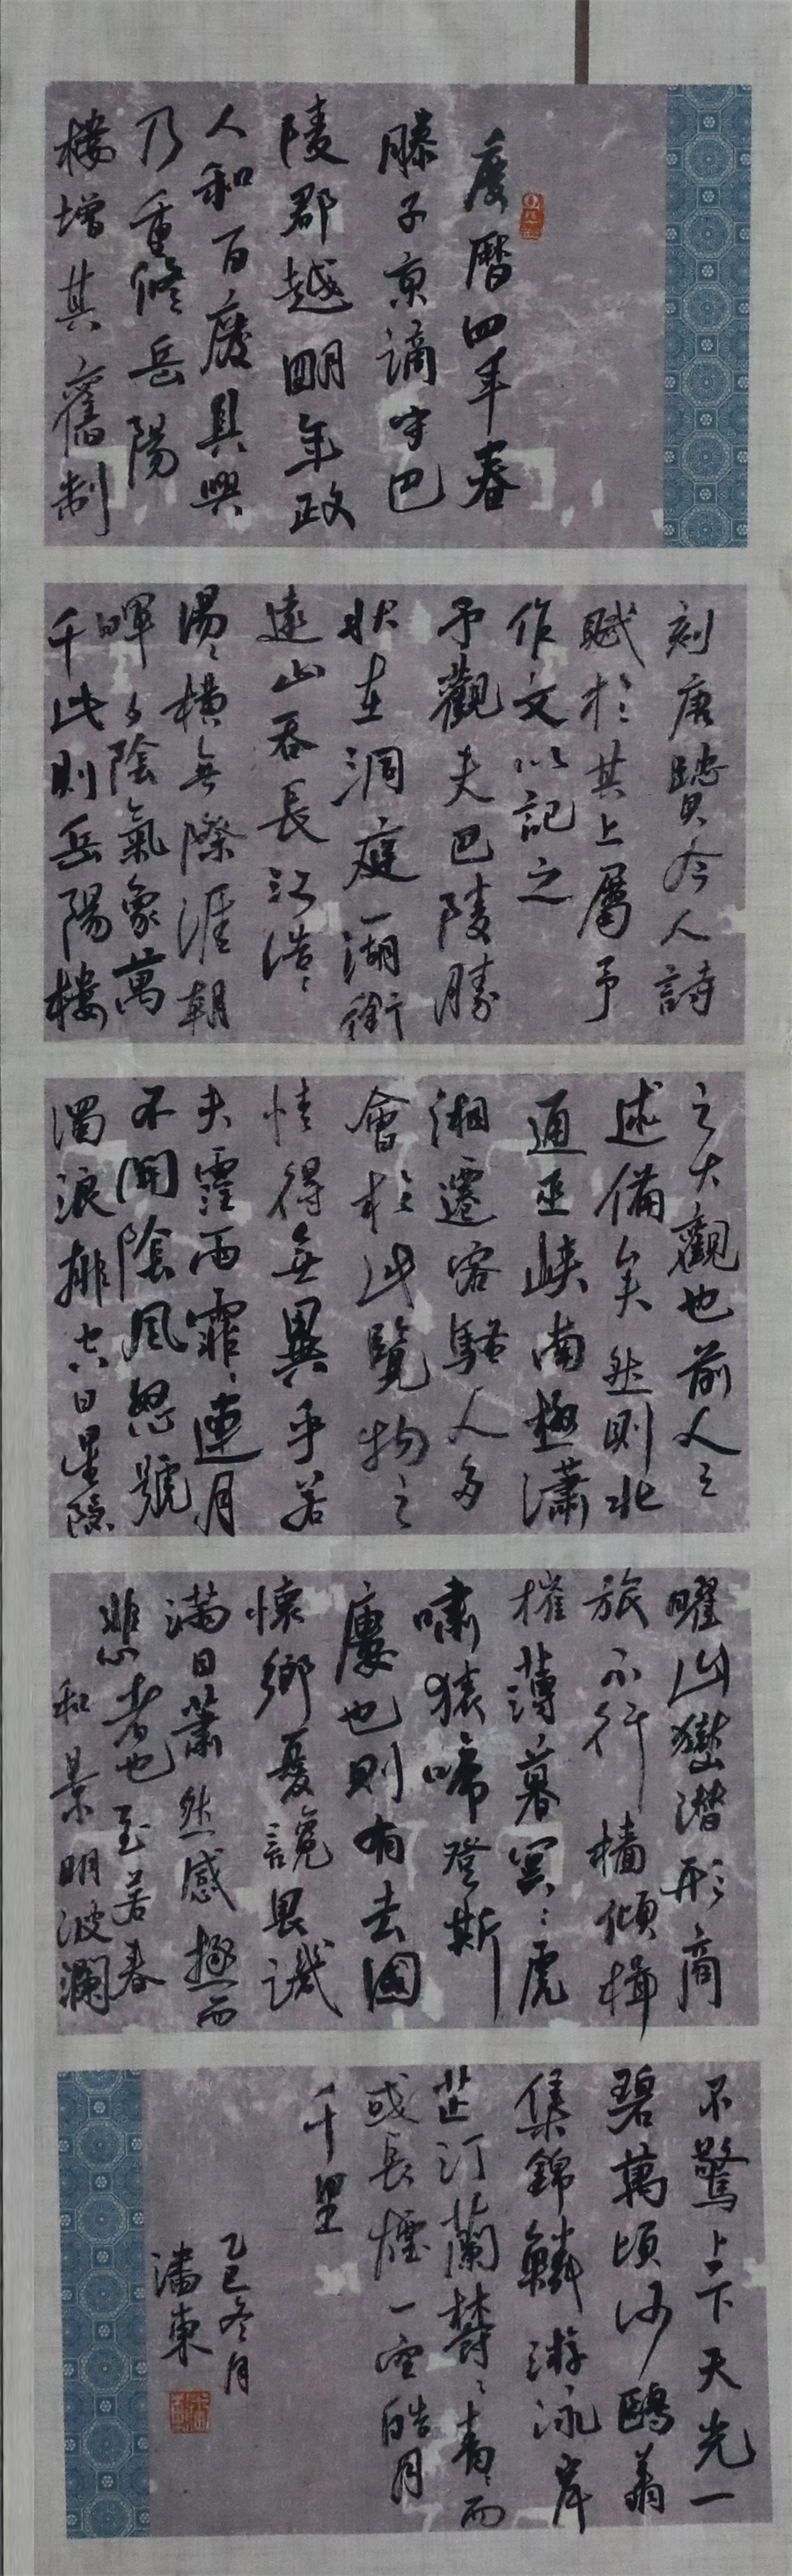 慶曆四年春
滕子京謫守巴
陵郡越明年政
人和百廢具興
乃重修岳陽
樓增其舊制
刻唐賢今人詩
賦於其上屬予
作文以記之
予觀夫巴陵勝
狀在洞庭一湖銜
遠山吞長江浩〻
湯〻橫無際涯朝
暉夕陰氣象萬
千此則岳陽樓
之大觀也前人之
述備矣然則北
通巫峽南極瀟
湘遷客騷人多
會於此覽物之
情得無異乎若
夫霪雨霏〻連月
不開陰風怒號
濁浪排空日星隱
曜山嶽潛形商
旅不行檣傾楫
摧薄〻暮冥〻虎
嘯猿啼登斯
樓也則有去國
懷鄉憂讒畏譏
滿目蕭然感極而
悲者也至若春
和景明波瀾
不驚上下天光一
碧萬頃沙鷗翔
集錦鱗游泳岸
芷汀蘭郁〻青〻而
或長煙一空皓月
千里
乙巳冬月
潘東